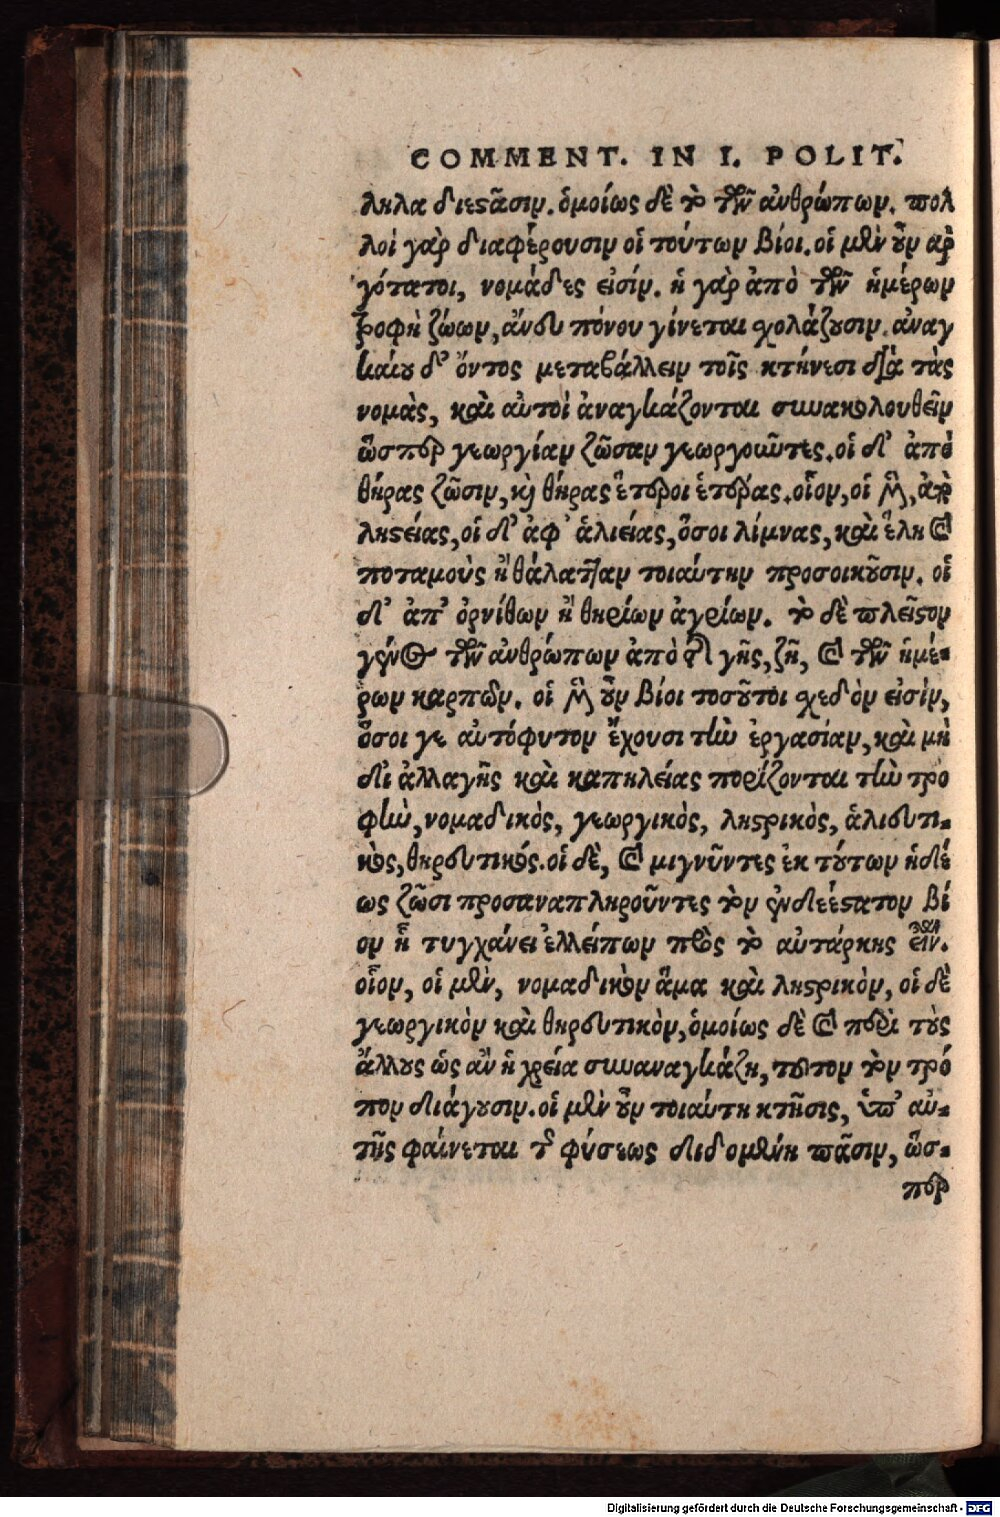 COMMENT. IN I. POLIT.
ληλα διεστᾶσιν. ὁμοίως δὲ τὸ τῶν ἀνθρώπων. πολ
λοὶ γὰρ διαφέρουσιν οἱ τούτων βίοι. οἱ μὲν οὖν ἀρ
γότατοι, νομάδες εἰσίν. ἡ γὰρ ἀπὸ τῶν ἡμέρων
τροφὴ ζώων, ἄνευ πόνου γίνεται σχολάζουσιν. ἀναγ
καίου δ' ὄντος μεταβάλλειν τοῖς κτήνεσι διὰ τὰς
νομὰς, καὶ αὐτοὶ ἀναγκάζονται συνακολουθεῖν
ὥσπερ γεωργίαν ζῶσαν γεωργοῦντες. οἱ δ' ἀπὸ
θήρας ζῶσιν, καὶ θήρας ἕτεροι ἑτέρας. οἷον, οἱ μὲν, ἀπὸ
ληστείας, οἱ δ' ἀφ' ἁλιείας, ὅσοι λίμνας, καὶ ἕλη καὶ
ποταμοὺς ἢ θάλατταν τοιαύτην προσοικοῦσιν. οἱ
δ' ἀπ' ὀρνίθων ἢ θηρίων ἀγρίων. τὸ δὲ πλεῖστον
γένος τῶν ἀνθρώπων ἀπὸ τῆς γῆς, ζῆ, καὶ τῶν ἡμέ-
ρων καρπῶν. οἱ μὲν οὖν βίοι τοσοῦτοι σχεδὸν εἰσίν,
ὅσοι γε αὐτόφυτον ἔχουσι τὴν ἐργασίαν, καὶ μὴ
δι' ἀλλαγῆς καὶ καπηλείας πορίζονται τὴν τρο
φὴν, νομαδικὸς, γεωργικὸς, ληστρικὸς, ἁλιευτι-
κὸς, θηρευτικός. οἱ δὲ, καὶ μιγνῦντες ἐκ τούτων ἡδέ
ως ζῶσι προσαναπληροῦντες τὸν ἐνδεέστατον βί
ον ᾗ τυγχάνει ἐλλείπων πρὸς τὸ αὐτάρκης εἶναι.
οἷον, οἱ μὲν, νομαδικὸν ἅμα καὶ ληστρικὸν, οἱ δὲ
γεωργικὸν καὶ θηρευτικὸν, ὁμοίως δὲ καὶ περὶ τοὺς
ἄλλους ὡς ἂν ἡ χρεία συναναγκάζη, τοῦτον τὸν τρό
πον διάγουσιν. οἱ μὲν οὖν τοιαύτη κτῆσις, ὑπ' αὐ-
τῆς φαίνεται τῆς φύσεως διδομένη πᾶσιν, ὥσ-
περ
Digitalisierung gefördert durch die Deutsche Forschungsgemeinschaft - DFG